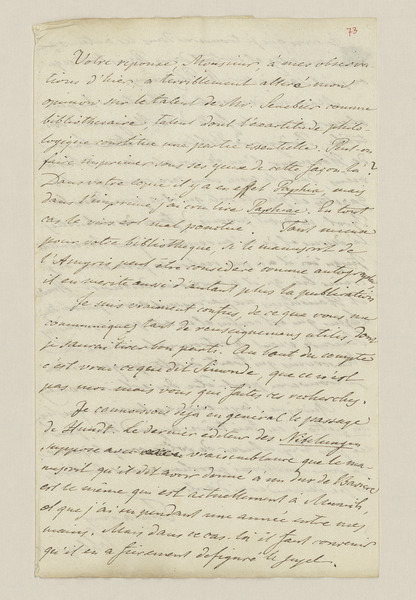 73
Votre reponse, Monsieur, à mes observa-
tions d'hier a terriblement alteré mon
opinion sur le talent de Mr. Senebier comme
bibliothecaire, talent dont l'exactitude philo-
logique constitue une partie essentielle. Peut on
faire imprimer sous ses yeux de cette façon là?
Dans votre copie il y a en effet Paphia, mais
dans l'imprimé j'ai cru lire Paphiae. En tout
cas le vers est mal ponctué. Tant mieux
pour votre bibliotheque, si le manuscrit de
peut être consideré comme autographe
il en merite aussi d'autant plus la publication
Je suis vraiment confus, de ce que vous me
communiquez tant de renseignemens utiles, dont
je saurai tirer bon parti. Au bout du compte
c'est vrai ce que dit Simonde que ce n'est
pas moi mais vous qui faites ces recherches.
Je connoissois déjà en général le passage
de Hundt. Le dernier editeur des Nibelungen
suppose avec vraisemblance que le ma-
nuscrit qu'il dit avoir donné à un Duc de Baviere
est le même qui est actuellement à Munich,
et que j'ai eu pendant une année entre mes
mains. Mais dans ce cas là il faut convenir
qu'il en a furieusement defiguré le sujet.